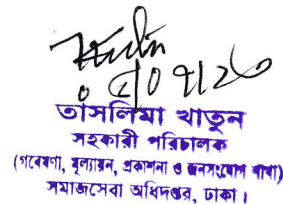 ০৫/০৭/২৩
তাসলিমা খাতুন
সহকারী পরিচালক
(গবেষণা, মূল্যায়ন, প্রকাশনা ও জনসংযোগ শাখা)
সমাজসেবা অধিদপ্তর, ঢাকা।